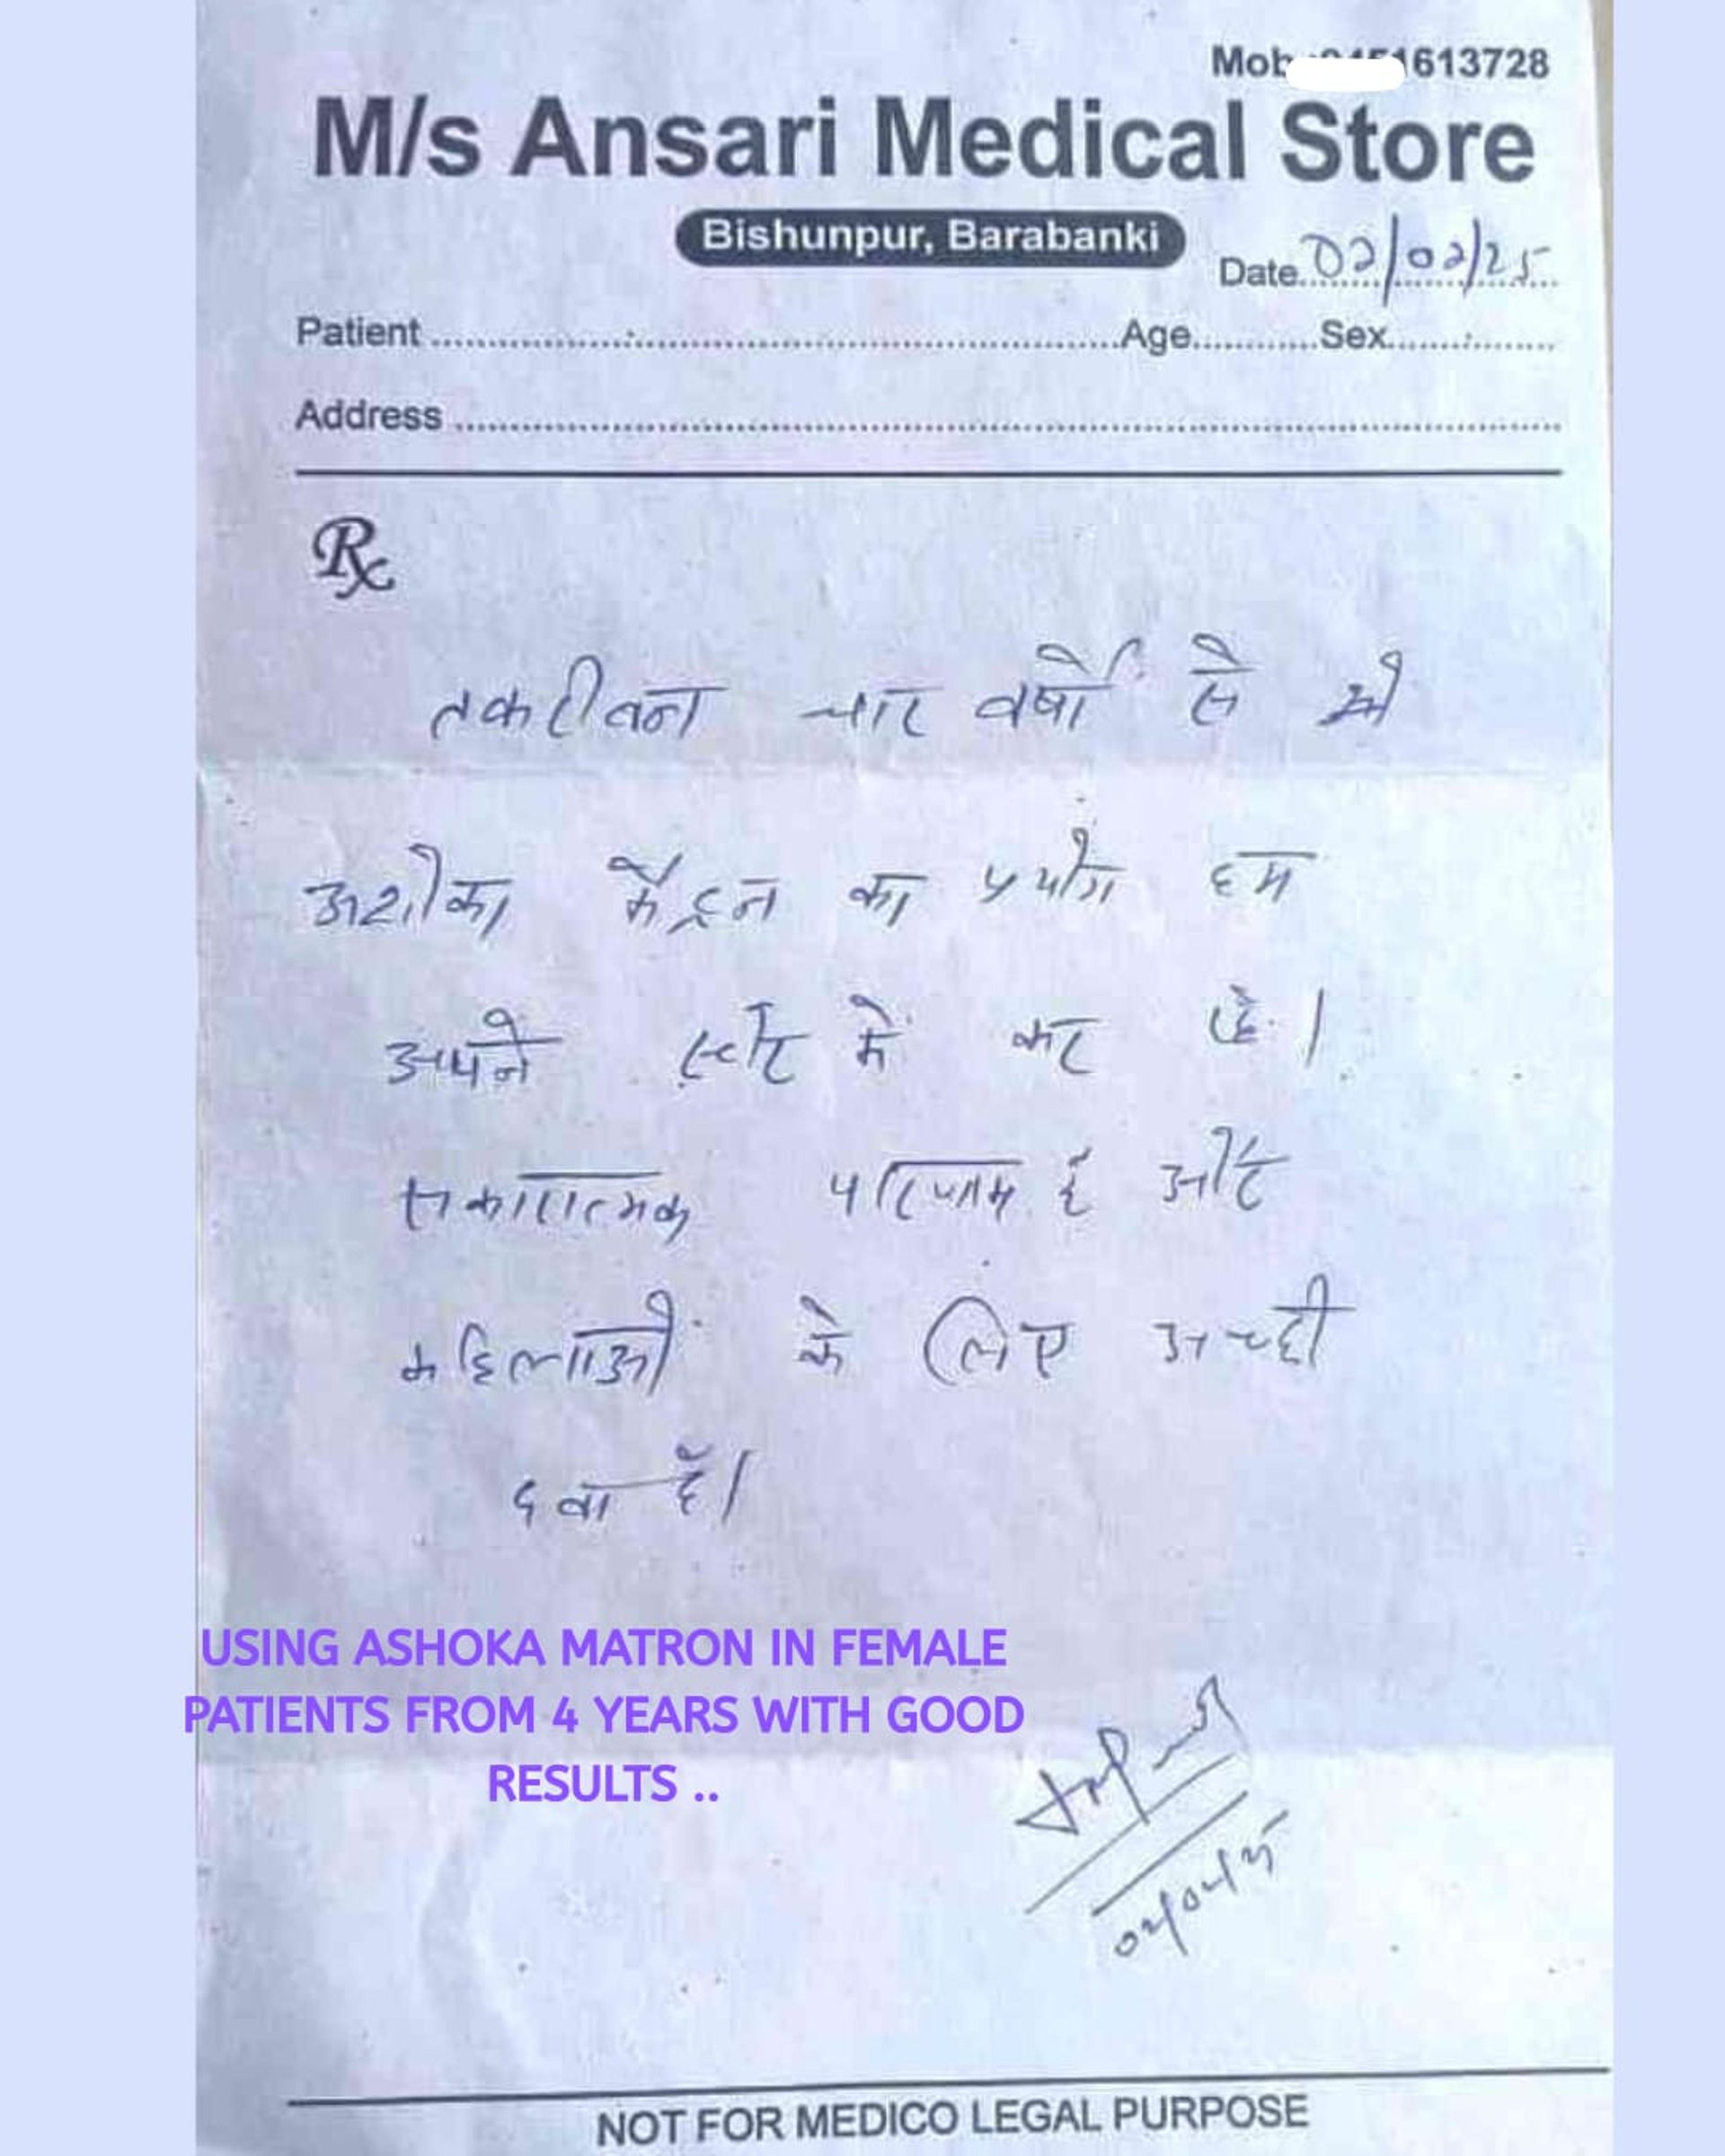 Mob 1613728
M/s Ansari Medical Store
Bishunpur, Barabanki
Date 02/02/25
Patient Age Sex
Address
Rx
तकरीवन चार वर्षो से
अशोका मैट्रन का प्रयोग हम
अपने स्टोर मे कर है।
सकारात्मक परिणाम है और
महिलाओ के लिए अच्छी
दवा है।
USING ASHOKA MATRON IN FEMALE
PATIENTS FROM 4 YEARS WITH GOOD
RESULTS ..
NOT FOR MEDICO LEGAL PURPOSE